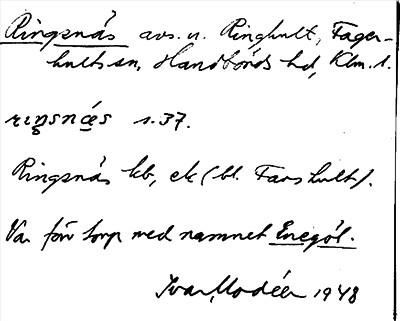 Ringsnäs avs. u. Ringhult, Fager-
hults sn, Handbörds hd, Klm. l.
riŋsnäs s. 37.
Ringsnäs kb, ek (bl. Farshult).
Var förr torp med namnet Enegöl.
Ivar Modéer 1948